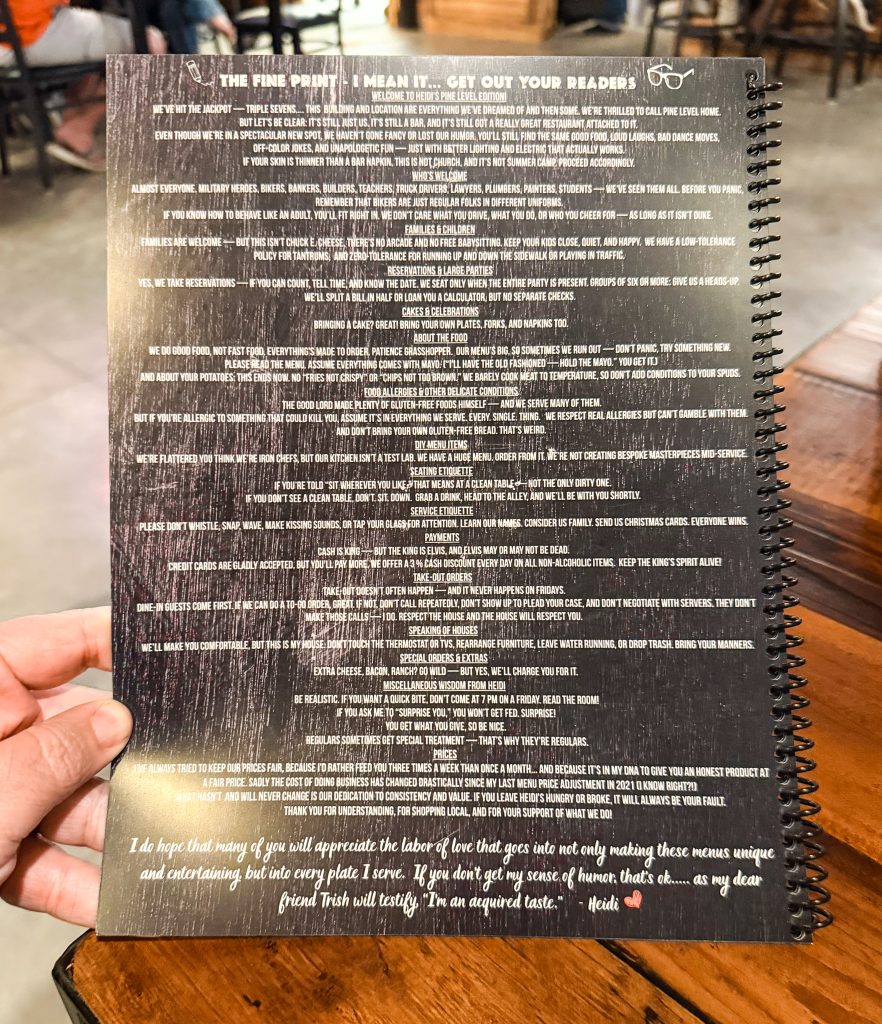 THE FINE PRINT - I MEAN IT... GET OUT YOUR READERS
WELCOME TO HEIDI'S PINE LEVEL EDITION!
WE'VE HIT THE JACKPOT — TRIPLE SEVENS.... THIS BUILDING AND LOCATION ARE EVERYTHING WE'VE DREAMED OF AND THEN SOME. WE'RE THRILLED TO CALL PINE LEVEL HOME.
BUT LET'S BE CLEAR: IT'S STILL JUST US, IT'S STILL A BAR, AND IT'S STILL GOT A REALLY GREAT RESTAURANT ATTACHED TO IT.
EVEN THOUGH WE'RE IN A SPECTACULAR NEW SPOT, WE HAVEN'T GONE FANCY OR LOST OUR HUMOR. YOU'LL STILL FIND THE SAME GOOD FOOD, LOUD LAUGHS, BAD DANCE MOVES,
OFF-COLOR JOKES, AND UNAPOLOGETIC FUN — JUST WITH BETTER LIGHTING AND ELECTRIC THAT ACTUALLY WORKS.
IF YOUR SKIN IS THINNER THAN A BAR NAPKIN, THIS IS NOT CHURCH, AND IT'S NOT SUMMER CAMP. PROCEED ACCORDINGLY.
WHO'S WELCOME
ALMOST EVERYONE. MILITARY HEROES, BIKERS, BANKERS, BUILDERS, TEACHERS, TRUCK DRIVERS, LAWYERS, PLUMBERS, PAINTERS, STUDENTS — WE'VE SEEN THEM ALL. BEFORE YOU PANIC,
REMEMBER THAT BIKERS ARE JUST REGULAR FOLKS IN DIFFERENT UNIFORMS.
IF YOU KNOW HOW TO BEHAVE LIKE AN ADULT, YOU'LL FIT RIGHT IN. WE DON'T CARE WHAT YOU DRIVE, WHAT YOU DO, OR WHO YOU CHEER FOR — AS LONG AS IT ISN'T DUKE.
FAMILIES & CHILDREN
FAMILIES ARE WELCOME — BUT THIS ISN'T CHUCK E. CHEESE. THERE'S NO ARCADE AND NO FREE BABYSITTING. KEEP YOUR KIDS CLOSE, QUIET, AND HAPPY. WE HAVE A LOW-TOLERANCE
POLICY FOR TANTRUMS, AND ZERO-TOLERANCE FOR RUNNING UP AND DOWN THE SIDEWALK OR PLAYING IN TRAFFIC.
RESERVATIONS & LARGE PARTIES
YES, WE TAKE RESERVATIONS — IF YOU CAN COUNT, TELL TIME, AND KNOW THE DATE. WE SEAT ONLY WHEN THE ENTIRE PARTY IS PRESENT. GROUPS OF SIX OR MORE: GIVE US A HEADS-UP.
WE'LL SPLIT A BILL IN HALF OR LOAN YOU A CALCULATOR, BUT NO SEPARATE CHECKS.
CAKES & CELEBRATIONS
BRINGING A CAKE? GREAT! BRING YOUR OWN PLATES, FORKS, AND NAPKINS TOO.
ABOUT THE FOOD
WE DO GOOD FOOD, NOT FAST FOOD. EVERYTHING'S MADE TO ORDER. PATIENCE GRASSHOPPER. OUR MENU'S BIG, SO SOMETIMES WE RUN OUT — DON'T PANIC, TRY SOMETHING NEW.
PLEASE READ THE MENU. ASSUME EVERYTHING COMES WITH MAYO. ("I'LL HAVE THE OLD FASHIONED — HOLD THE MAYO." YOU GET IT.)
AND ABOUT YOUR POTATOES: THIS ENDS NOW. NO "FRIES NOT CRISPY" OR "CHIPS NOT TOO BROWN." WE BARELY COOK MEAT TO TEMPERATURE, SO DON'T ADD CONDITIONS TO YOUR SPUDS.
FOOD ALLERGIES & OTHER DELICATE CONDITIONS
THE GOOD LORD MADE PLENTY OF GLUTEN-FREE FOODS HIMSELF — AND WE SERVE MANY OF THEM.
BUT IF YOU'RE ALLERGIC TO SOMETHING THAT COULD KILL YOU, ASSUME IT'S IN EVERYTHING WE SERVE. EVERY. SINGLE. THING. WE RESPECT REAL ALLERGIES BUT CAN'T GAMBLE WITH THEM.
AND DON'T BRING YOUR OWN GLUTEN-FREE BREAD. THAT'S WEIRD.
DIY MENU ITEMS
WE'RE FLATTERED YOU THINK WE'RE IRON CHEFS, BUT OUR KITCHEN ISN'T A TEST LAB. WE HAVE A HUGE MENU. ORDER FROM IT. WE'RE NOT CREATING BESPOKE MASTERPIECES MID-SERVICE.
SEATING ETIQUETTE
IF YOU'RE TOLD "SIT WHEREVER YOU LIKE," THAT MEANS AT A CLEAN TABLE — NOT THE ONLY DIRTY ONE.
IF YOU DON'T SEE A CLEAN TABLE, DON'T. SIT. DOWN. GRAB A DRINK, HEAD TO THE ALLEY, AND WE'LL BE WITH YOU SHORTLY.
SERVICE ETIQUETTE
PLEASE DON'T WHISTLE, SNAP, WAVE, MAKE KISSING SOUNDS, OR TAP YOUR GLASS FOR ATTENTION. LEARN OUR NAMES. CONSIDER US FAMILY. SEND US CHRISTMAS CARDS. EVERYONE WINS.
PAYMENTS
CASH IS KING — BUT THE KING IS ELVIS, AND ELVIS MAY OR MAY NOT BE DEAD.
CREDIT CARDS ARE GLADLY ACCEPTED, BUT YOU'LL PAY MORE. WE OFFER A 3 % CASH DISCOUNT EVERY DAY ON ALL NON-ALCOHOLIC ITEMS. KEEP THE KING'S SPIRIT ALIVE!
TAKE-OUT ORDERS
TAKE-OUT DOESN'T OFTEN HAPPEN — AND IT NEVER HAPPENS ON FRIDAYS.
DINE-IN GUESTS COME FIRST. IF WE CAN DO A TO-GO ORDER, GREAT. IF NOT, DON'T CALL REPEATEDLY, DON'T SHOW UP TO PLEAD YOUR CASE, AND DON'T NEGOTIATE WITH SERVERS. THEY DON'T
MAKE THOSE CALLS — I DO. RESPECT THE HOUSE AND THE HOUSE WILL RESPECT YOU.
SPEAKING OF HOUSES
WE'LL MAKE YOU COMFORTABLE, BUT THIS IS MY HOUSE. DON'T TOUCH THE THERMOSTAT OR TVS, REARRANGE FURNITURE, LEAVE WATER RUNNING, OR DROP TRASH. BRING YOUR MANNERS.
SPECIAL ORDERS & EXTRAS
EXTRA CHEESE, BACON, RANCH? GO WILD — BUT YES, WE'LL CHARGE YOU FOR IT.
MISCELLANEOUS WISDOM FROM HEIDI
BE REALISTIC. IF YOU WANT A QUICK BITE, DON'T COME AT 7 PM ON A FRIDAY. READ THE ROOM!
IF YOU ASK ME TO "SURPRISE YOU," YOU WON'T GET FED. SURPRISE!
YOU GET WHAT YOU GIVE, SO BE NICE.
REGULARS SOMETIMES GET SPECIAL TREATMENT — THAT'S WHY THEY'RE REGULARS.
PRICES
I'VE ALWAYS TRIED TO KEEP OUR PRICES FAIR, BECAUSE I'D RATHER FEED YOU THREE TIMES A WEEK THAN ONCE A MONTH... AND BECAUSE IT'S IN MY DNA TO GIVE YOU AN HONEST PRODUCT AT
A FAIR PRICE. SADLY THE COST OF DOING BUSINESS HAS CHANGED DRASTICALLY SINCE MY LAST MENU PRICE ADJUSTMENT IN 2021 (I KNOW RIGHT?!)
WHAT HASN'T AND WILL NEVER CHANGE IS OUR DEDICATION TO CONSISTENCY AND VALUE. IF YOU LEAVE HEIDI'S HUNGRY OR BROKE, IT WILL ALWAYS BE YOUR FAULT.
THANK YOU FOR UNDERSTANDING, FOR SHOPPING LOCAL, AND FOR YOUR SUPPORT OF WHAT WE DO!
I do hope that many of you will appreciate the labor of love that goes into not only making these menus unique
and entertaining, but into every plate I serve. If you don't get my sense of humor, that's ok..... as my dear
friend Trish will testify, "I'm an acquired taste." - Heidi